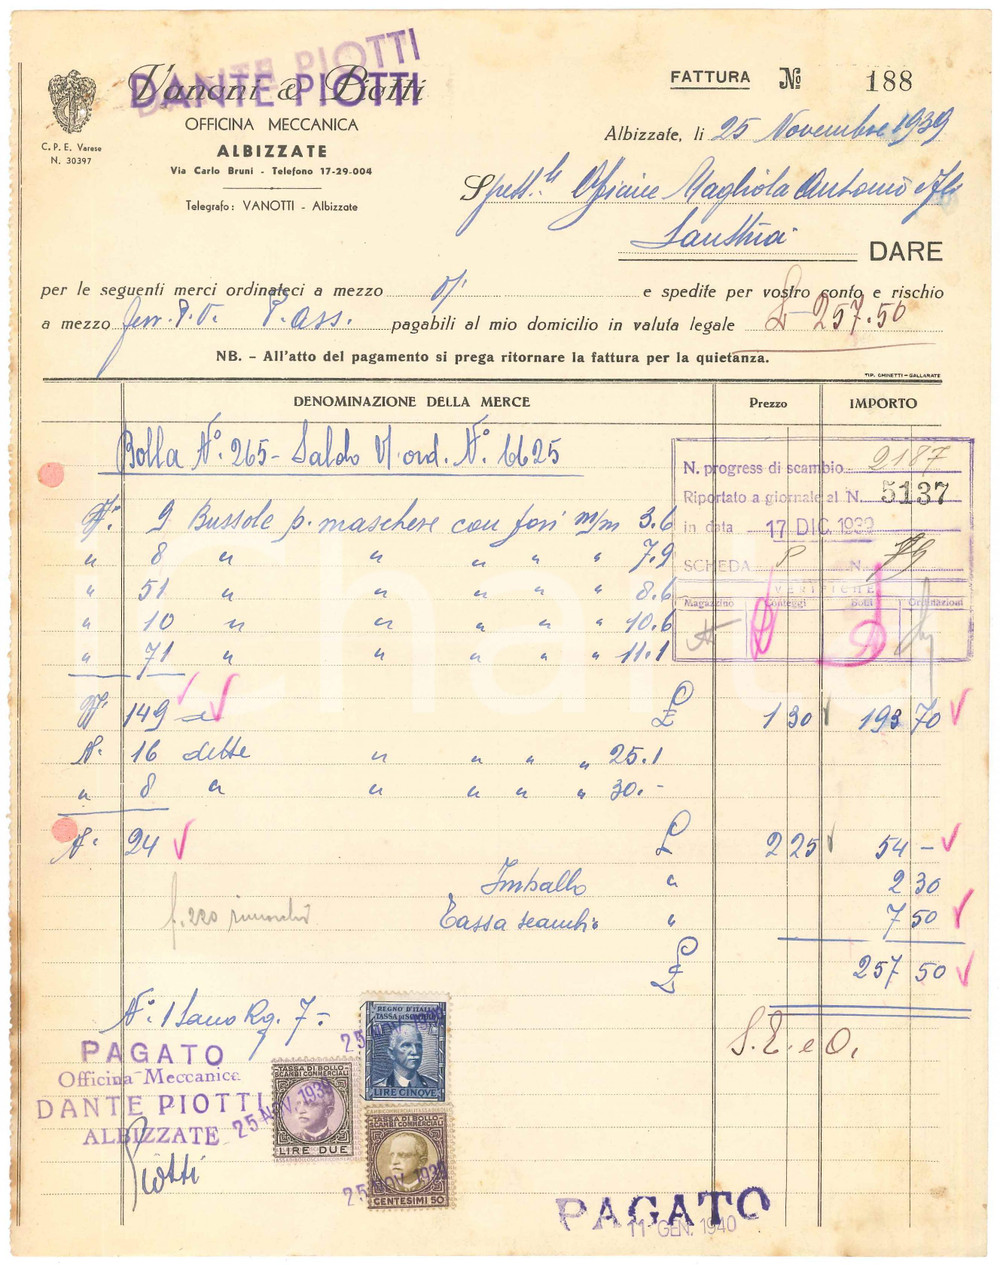 Vanoni & Piotti
DANTE PIOTTI
DANTE PIOTTI
OFFICINA MECCANICA
ALBIZZATE
Via Carlo Bruni - Telefono 17-29-004
Telegrafo: VANOTTI - Albizzate
C. P. E. Varese
N. 30397
FATTURA No 188
Albizzate, li 25 Novembre 1939
Spett.le Officine Magliola Antonio e Figli
Santhià DARE
per le seguenti merci ordinateci a mezzo e spedite per vostro conto e rischio
a mezzo ferr. P.V. P. ass. pagabili al mio domicilio in valuta legale £ 257.50
NB. - All'atto del pagamento si prega ritornare la fattura per la quietanza.
TIP. CHINETTI - GALLARATE
DENOMINAZIONE DELLA MERCE Prezzo IMPORTO
Bolla N° 265 - Saldo V/ ord. N° 6625
N. progress di scambio 2187
Riportato a giornale al N. 5137
in data 17 DIC. 1939
SCHEDA P N. 79
VERIFICHE
Magazzino Conteggi Bolli Ordinazioni
N° 9 Bussole p. maschere con fori m/m 3.6
" 8 " " " " 7.9
" 51 " " " " 8.6
" 10 " " " " 10.6
" 71 " " " " 11.1
N° 149 £ 1 30 193 70
N. 16 dette " " " " 25.1
" 8 " " " " " 30.-
N. 24 £ 2 25 54 -
Imballo " 2 30
f. 220 Tassa scambio " 7 50
£ 257 50
N° 1 Sacco Kg. 7 -
S. E. e O.
PAGATO
Officina Meccanica
DANTE PIOTTI
ALBIZZATE
Piotti
REGNO D'ITALIA
TASSA DI SCAMBIO
LIRE CINQVE
25 NOV. 1939
TASSA DI BOLLO
SCAMBI COMMERCIALI
LIRE DUE
25 NOV. 1939
TASSA DI BOLLO
SCAMBI COMMERCIALI
CENTESIMI 50
25 NOV. 1939
PAGATO
11 GEN. 1940
iCharta